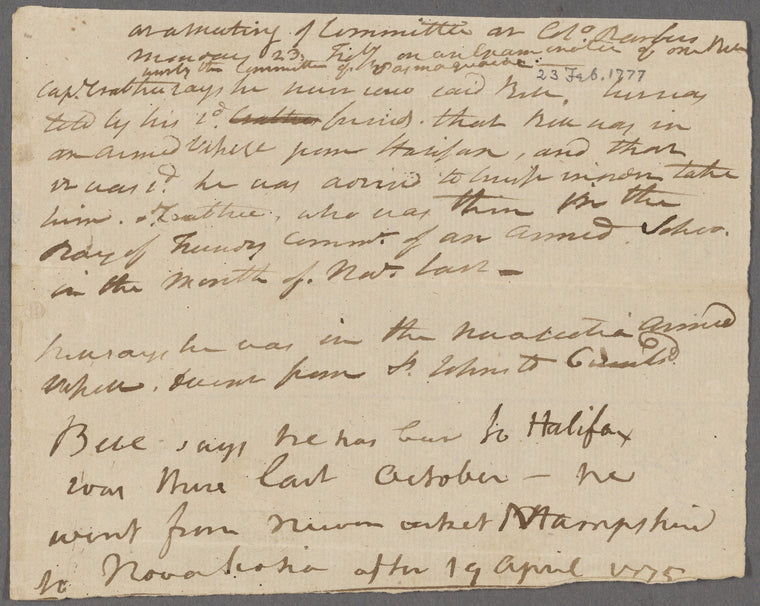 at a Meeting of Committee at Colo.
Monday 23. Feby on an Examination of one Bell
with the Committee of
23 Feb. 1777
Capt. Crabtree says he never said Bell. he was
told by his sd. friends. that Bell was in
an armed Vessell from Halifax, and that
it was sd. he was to Cruise in order take
him. sd. Crabtree, who was then in the
Bay of Fundy Commr. of an armed Schoo.
in the month of Novr. last —
he says he was in the Novascotia Armed
Vessell. & went from St. Johns to Cumbd.
Bell says he has been to Halifax
was there last October — he
went from New market N Hampshire
to Nova Scotia after 19 April 1775